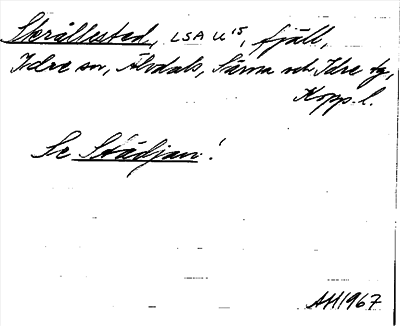 Skrållested, LSA U¹⁵, fjäll,
Idre sn, Älvdals, Särna och Idre tg,
Kopp. l.
Se Städjan!
AH 1967